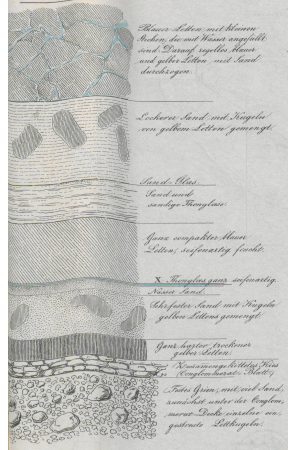 Blauer Letten mit blauen
die mit Wasser angefüllt
sind. Darauf blauer
und gelber Letten mit Sand
durchzogen.
Lockerer Sand mit Kugeln
von gelbem Letten gemengt.
Sand
Sand und
sandige
Ganz compakter blauer
Letten, seifenartig feucht.
X ganz seifenartig.
Nasser Sand
Sehr fester Sand mit Kugeln
gelben Lettens gemengt.
Ganz harter, trockener
gelber Letten
Kies
(Conglomerat-Platte)
mit viel Sand,
zunächst unter der Conglom-
merat-Decke einzelne ein-
gestreute Lettkugeln.